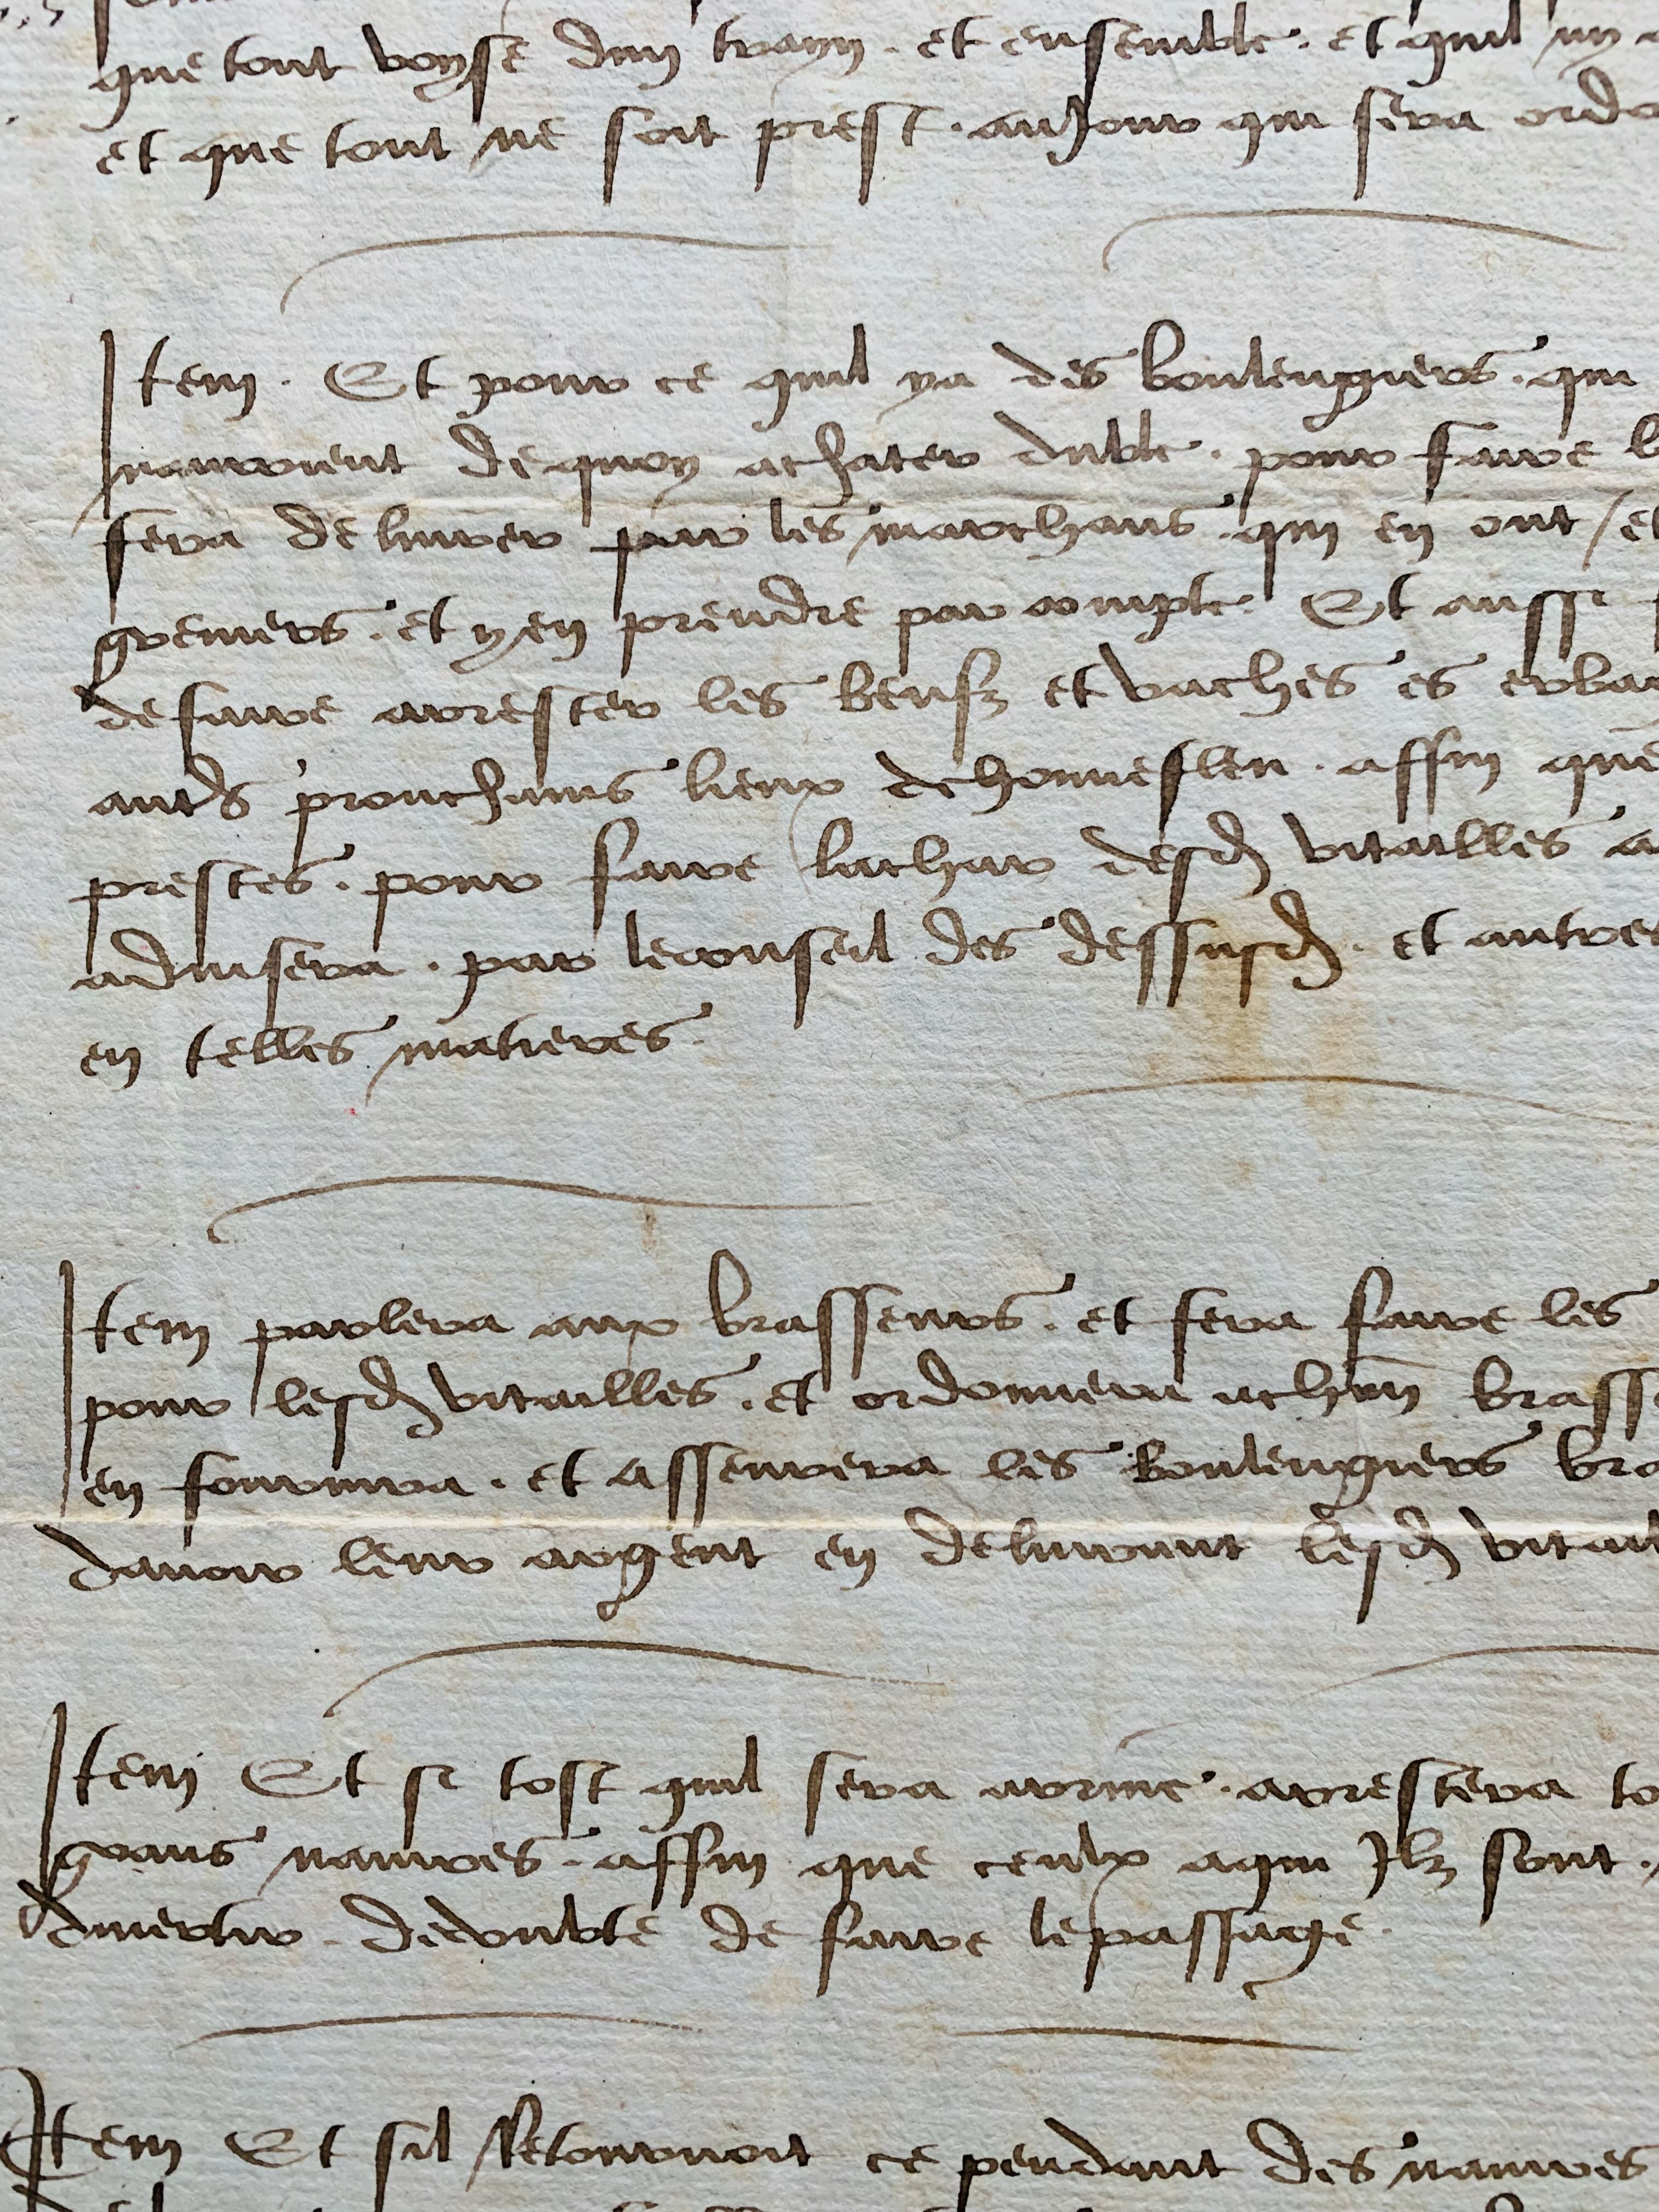 que tout voyse dun trayn . et ensemble . et quil ny
et que tout ne soit prest . au Jour qui sera ordo
Item . Et pour ce quil ya des boulengiers . qui
nauroient de quoy achater du ble . pour faire
fera deliurer par les marchans . qui en ont / et
greniers . et y en prendre par compte . Et aussi
de faire arrester les beufz et vaches es erbai
autrs prouchains lieux de honnefleu . affin que
prestes . pour faire lachar desd vitailles a
aduisera . par le conseil des dessusd . et autres
en telles matieres .
Item parlera aux brasseurs . et fera faire les
pour lesd vitailles . et ordonnera a chun brasse
en fournira . et asseurera les Boulengiers bra
dauoir leur argent en deliurant lesd vitail
Item Et si tost quil sera arriue . arrestera to
grans nauires . affin que ceulx a qui Ilz sont .
diuertir . de doubte de faire le passage .
Item Et sil Retournoit ce pendant des nauires